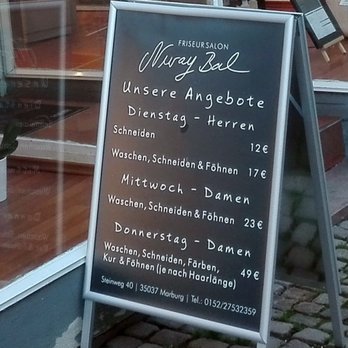 FRISEURSALON
Nuray Bal
Unsere Angebote
Dienstag - Herren
Schneiden 12€
Waschen, Schneiden & Föhnen 17€
Mittwoch - Damen
Waschen, Schneiden & Föhnen 23€
Donnerstag - Damen
Waschen, Schneiden, Färben,
Kur & Föhnen (je nach Haarlänge) 49€
Steinweg 40 | 35037 Marburg | Tel.: 0152/27532359